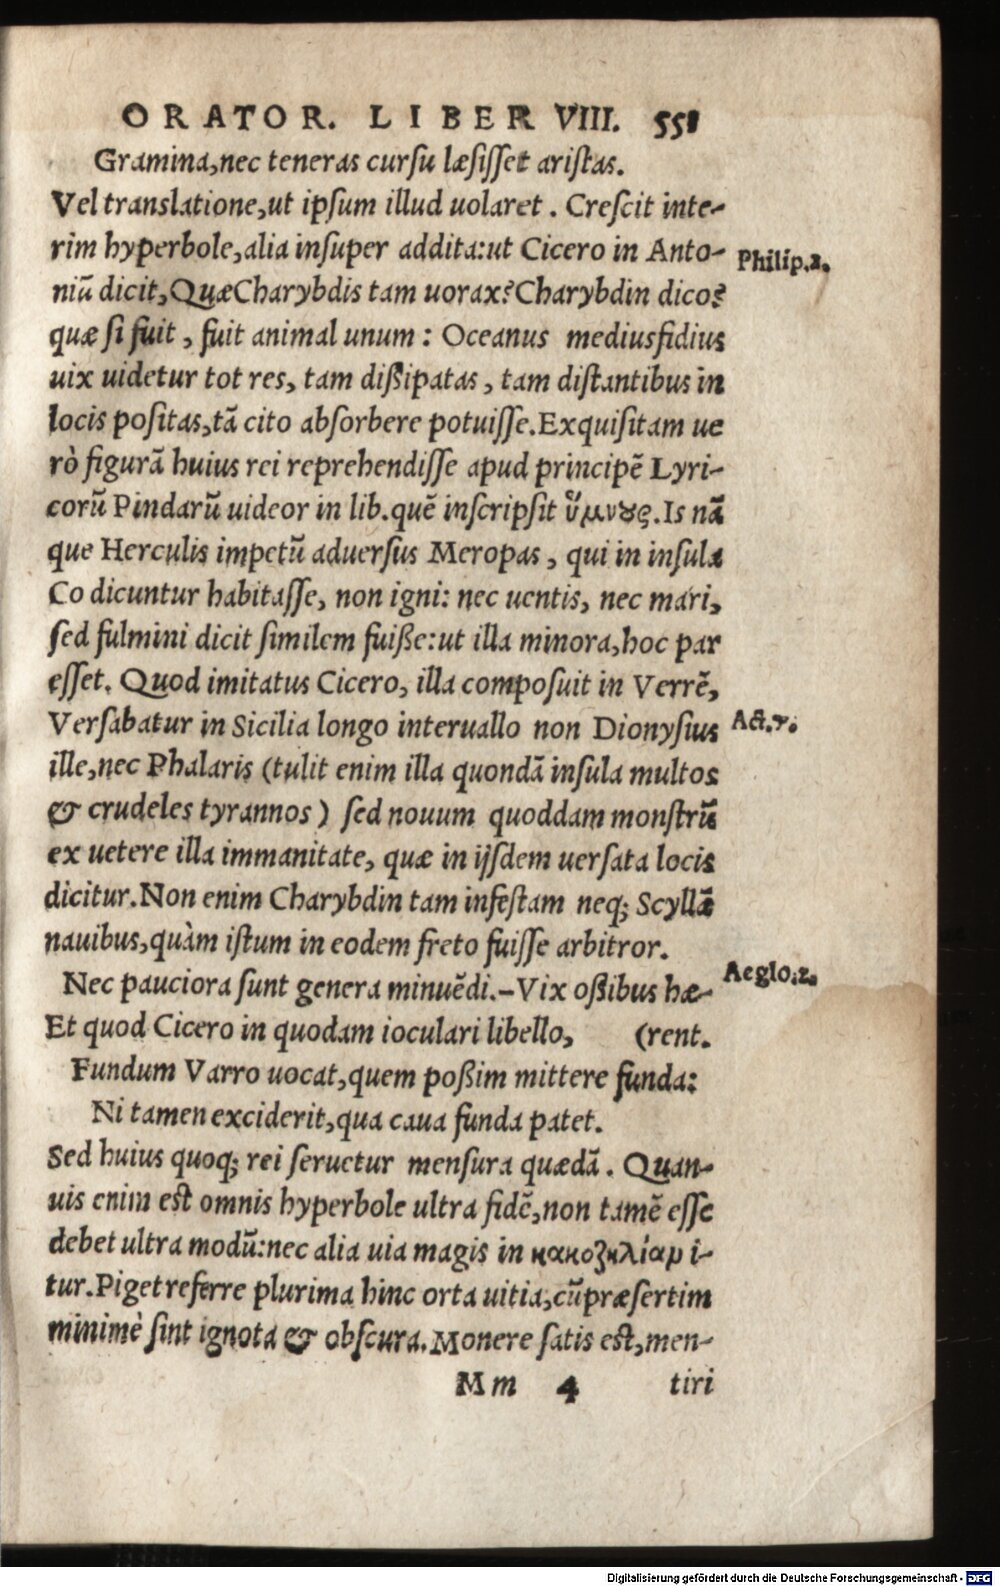 ORATOR. LIBER VIII. 551
Gramina,nec teneras cursu læsisset aristas.
Vel translatione,ut ipsum illud uolaret. Crescit inte-
rim hyperbole,alia insuper addita:ut Cicero in Anto-
niũ dicit,QuæCharybdis tam uorax?Charybdin dico?
quæ si fuit, fuit animal unum: Oceanus mediusfidius
uix uidetur tot res, tam dißipatas, tam distantibus in
locis positas,tã cito absorbere potuisse.Exquisitam ue
rò figurã huius rei reprehendisse apud principẽ Lyri-
corũ Pindarũ uideor in lib.quẽ inscripsit ὕμνους.Is nã
que Herculis impetũ aduersus Meropas, qui in insula
Co dicuntur habitasse, non igni: nec uentis, nec mari,
sed fulmini dicit similem fuiße:ut illa minora,hoc par
esset. Quod imitatus Cicero, illa composuit in Verrẽ,
Versabatur in Sicilia longo interuallo non Dionysius
ille,nec Phalaris (tulit enim illa quondã insula multos
& crudeles tyrannos) sed nouum quoddam monstrũ
ex uetere illa immanitate, quæ in ijsdem uersata locis
dicitur.Non enim Charybdin tam infestam neq; Scyllã
nauibus,quàm istum in eodem freto fuisse arbitror.
Nec pauciora sunt genera minuẽdi.-Vix oßibus hæ-
Et quod Cicero in quodam ioculari libello, (rent.
Fundum Varro uocat,quem poßim mittere funda:
Ni tamen exciderit,qua caua funda patet.
Sed huius quoq; rei seruetur mensura quædã. Quan-
uis enim est omnis hyperbole ultra fidẽ,non tamẽ esse
debet ultra modũ:nec alia uia magis in κακοζηλίαμ i-
tur.Piget referre plurima hinc orta uitia,cũ præsertim
minimè sint ignota & obscura.Monere satis est,men-
Mm 4 tiri
Philip.2.
Act.7.
Aeglo.2.
Digitalisierung gefördert durch die Deutsche Forschungsgemeinschaft - DFG